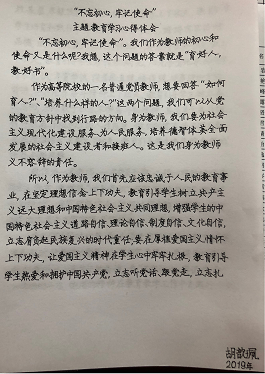 “不忘初心,牢记使命”
主题教育学习心得体会
“不忘初心,牢记使命”。我们作为教师的初心和
使命又是什么呢?我想,这个问题的答案就是“育好人,
教好书”。
作为高等院校的一名普通党员教师,想要回答“如何
育人?”、“培养什么样的人?”这两个问题,我们可以从党
的教育方针中找到行路的方向。身为教师,我们要为社会
主义现代化建设服务、为人民服务,培养德智体美全面
发展的社会主义建设者和接班人。这是我们身为教师
义不容辞的责任。
所以,作为教师,我们首先应该忠诚于人民的教育事
业,在坚定理想信念上下功夫,教育引导学生树立共产主
义远大理想和中国特色社会主义共同理想,增强学生的中
国特色社会主义道路自信、理论自信、制度自信、文化自信,
立志肩负起民族复兴的时代重任;要在厚植爱国主义情怀
上下功夫,让爱国主义精神在学生心中牢牢扎根,教育引导
学生热爱和拥护中国共产党,立志听党话、跟党走,立志扎
2019年